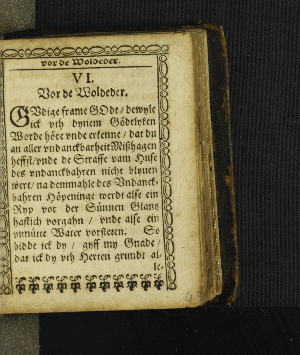 vor de Woldeder.
VI.
Vor de Woldeder.
GVdige frame GOdt / dewyle
ick vth dynem Gödtlyken
Worde höre vnde erkenne / dat du
an aller vndanckbarheit Mißhagen
heffst / vnde de Straffe vam Huse
des vndanckbahren nicht blyuen
wert / na demmahle des Vndanck-
bahren Höpeninge werdt alse ein
Ryp vor der Sünnen Glans
hastich vorgahn / vnde alse ein
vnnütte Water vorsleten. So
bidde ick dy / gyff my Gnade /
dat ick dy vth Herten grundt al-
le-